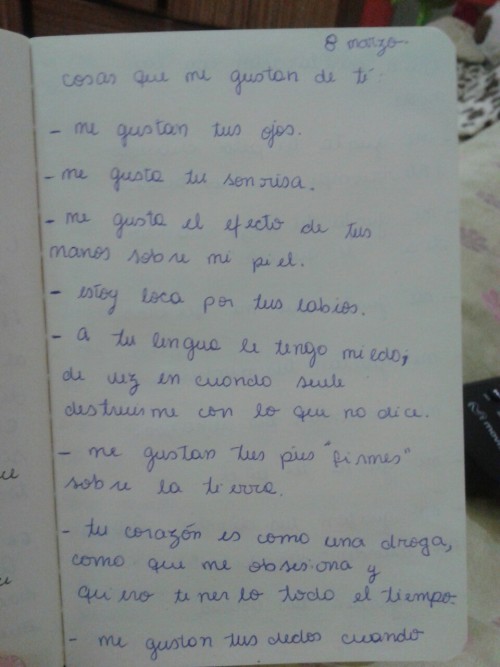 8 marzo
cosas que me gustan de tí:
- me gustan tus ojos.
- me gusta tu sonrisa.
- me gusta el efecto de tus
manos sobre mi piel.
- estoy loca por tus labios.
- a tu lengua le tengo miedo,
de vez en cuando suele
destruirme con lo que no dice.
- me gustan tus pies "firmes"
sobre la tierra.
- tu corazón es como una droga,
como que me obsesiona y
quiero tenerlo todo el tiempo.
- me gustan tus dedos cuando